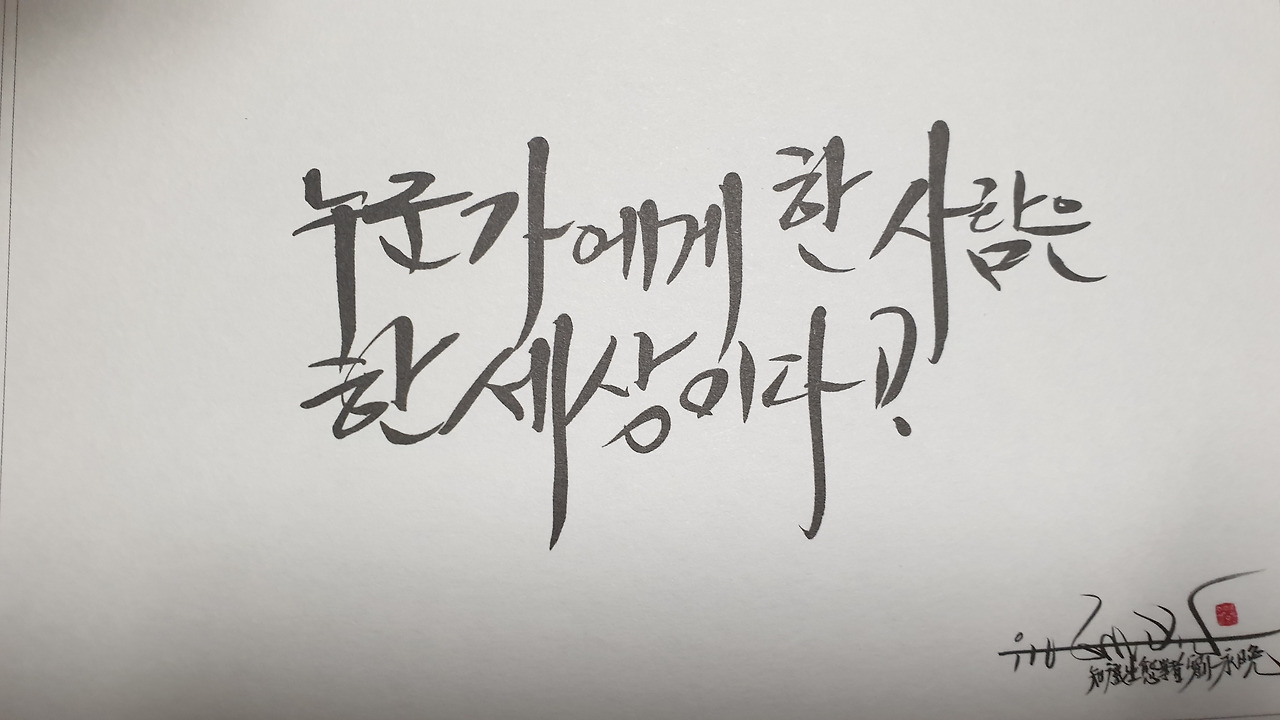 누군가에게 한 사람은
한 세상이다!